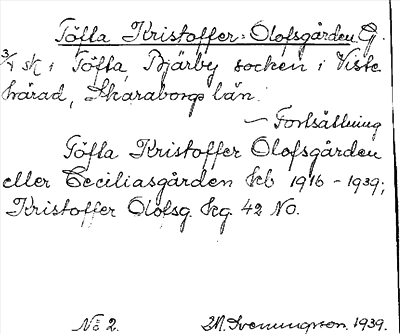 Töfta Kristoffer-Olofsgården G.
3/4 sk i Töfta, Bjärby socken i Viste
härad, Skaraborgs län.
— Fortsättning
Töfta Kristoffer Olofsgården
eller Ceciliasgården kb 1916-1939;
Kristoffer Olofsg. kg. 42 No.
No 2. M. Sveningson. 1939.